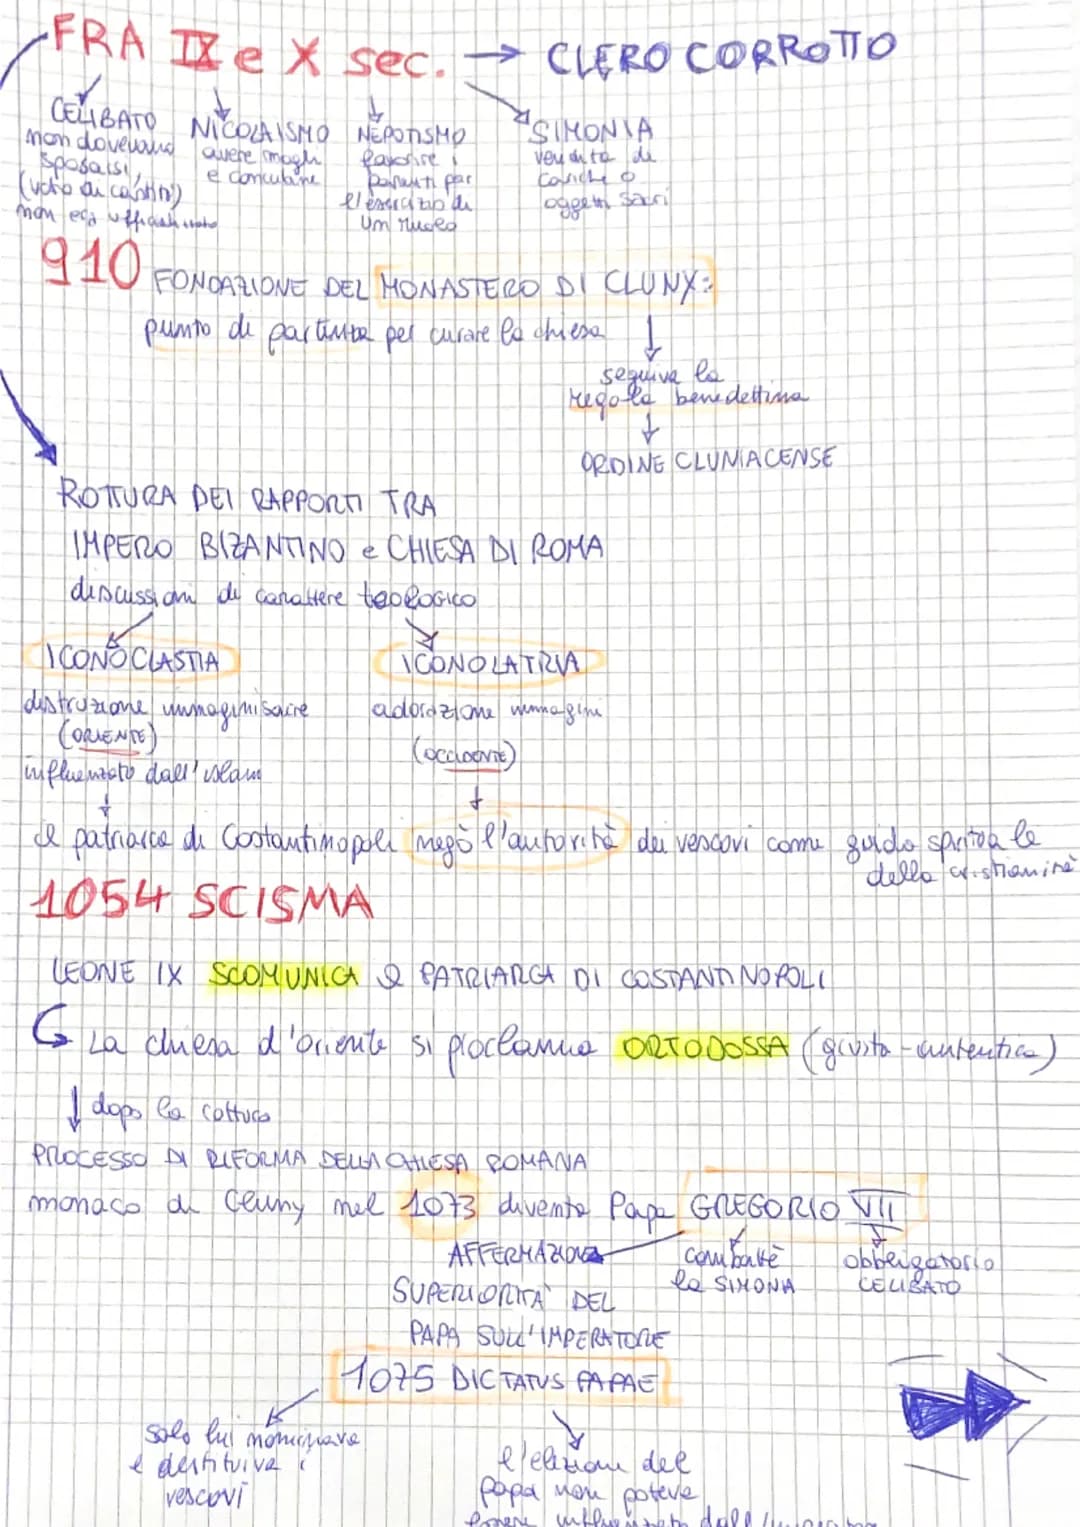 FRA IX e X sec. → CLERO CORROTTO
CELIBATO
non dovevano
sposarsi,
(voto di castità)
non era ufficializzato
NICOLAISMO
avere mogli
e concubine
NEPOTISMO
favorire i
parenti per
l'esercizio di
un ruolo
SIMONIA
vendita di
cariche o
oggetti sacri
910 FONDAZIONE DEL MONASTERO DI CLUNY:
punto di partenza per curare la chiesa
seguiva la
regola benedettina
ORDINE CLUNIACENSE
ROTTURA DEI RAPPORTI TRA
IMPERO BIZANTINO e CHIESA DI ROMA
discussioni di carattere teologico
ICONOCLASTIA
distruzione immagini sacre
(ORIENTE)
influenzato dall'islam
ICONOLATRIA
adorazione immagini
(OCCIDENTE)
il patriarca di Costantinopoli negò l'autorità dei vescovi come guida spirituale
della cristianità
1054 SCISMA
LEONE IX SCOMUNICA il PATRIARCA DI COSTANTINOPOLI
La chiesa d'oriente si proclama ORTODOSSA (giusta - autentica)
↓ dopo la rottura
PROCESSO DI RIFORMA DELLA CHIESA ROMANA
monaco di Cluny nel 1073 diventa Papa GREGORIO VII
AFFERMAZIONE
SUPERIORITÀ DEL
PAPA SULL'IMPERATORE
combatté
la SIMONIA
obbligatorio
CELIBATO
1075 DICTATUS PAPAE
solo lui nominava
e destituiva i
vescovi
l'elezione del
papa non poteva
essere influenzata dall'